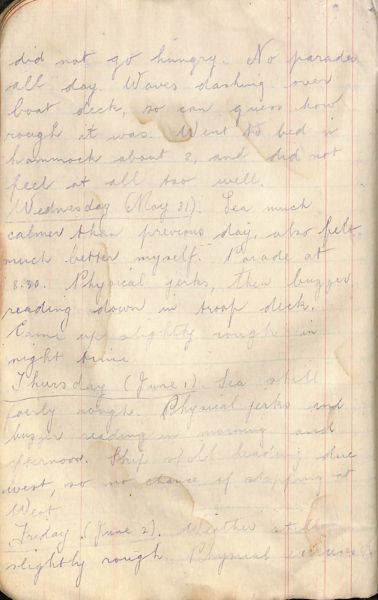 did not go hungry. No parades
all day. Waves dashing over
boat deck, so can guess how
rough it was. Went to bed in
hammock about 8, and did not
feel at all too well.
Wednesday (May 31). Sea much
calmer than previous day, also felt
much better myself. Parade at
8.30. Physical jerks, then buzzer
reading down in troop deck.
Came up slightly rough in
night time
Thursday (June 1) Sea still
fairly rough. Physical jerks and
buzzer reading in morning and
afternoon. Ship still heading due
west, so no chance of stopping at
West
Friday (June 2). Weather still
slightly rough Physical exercise